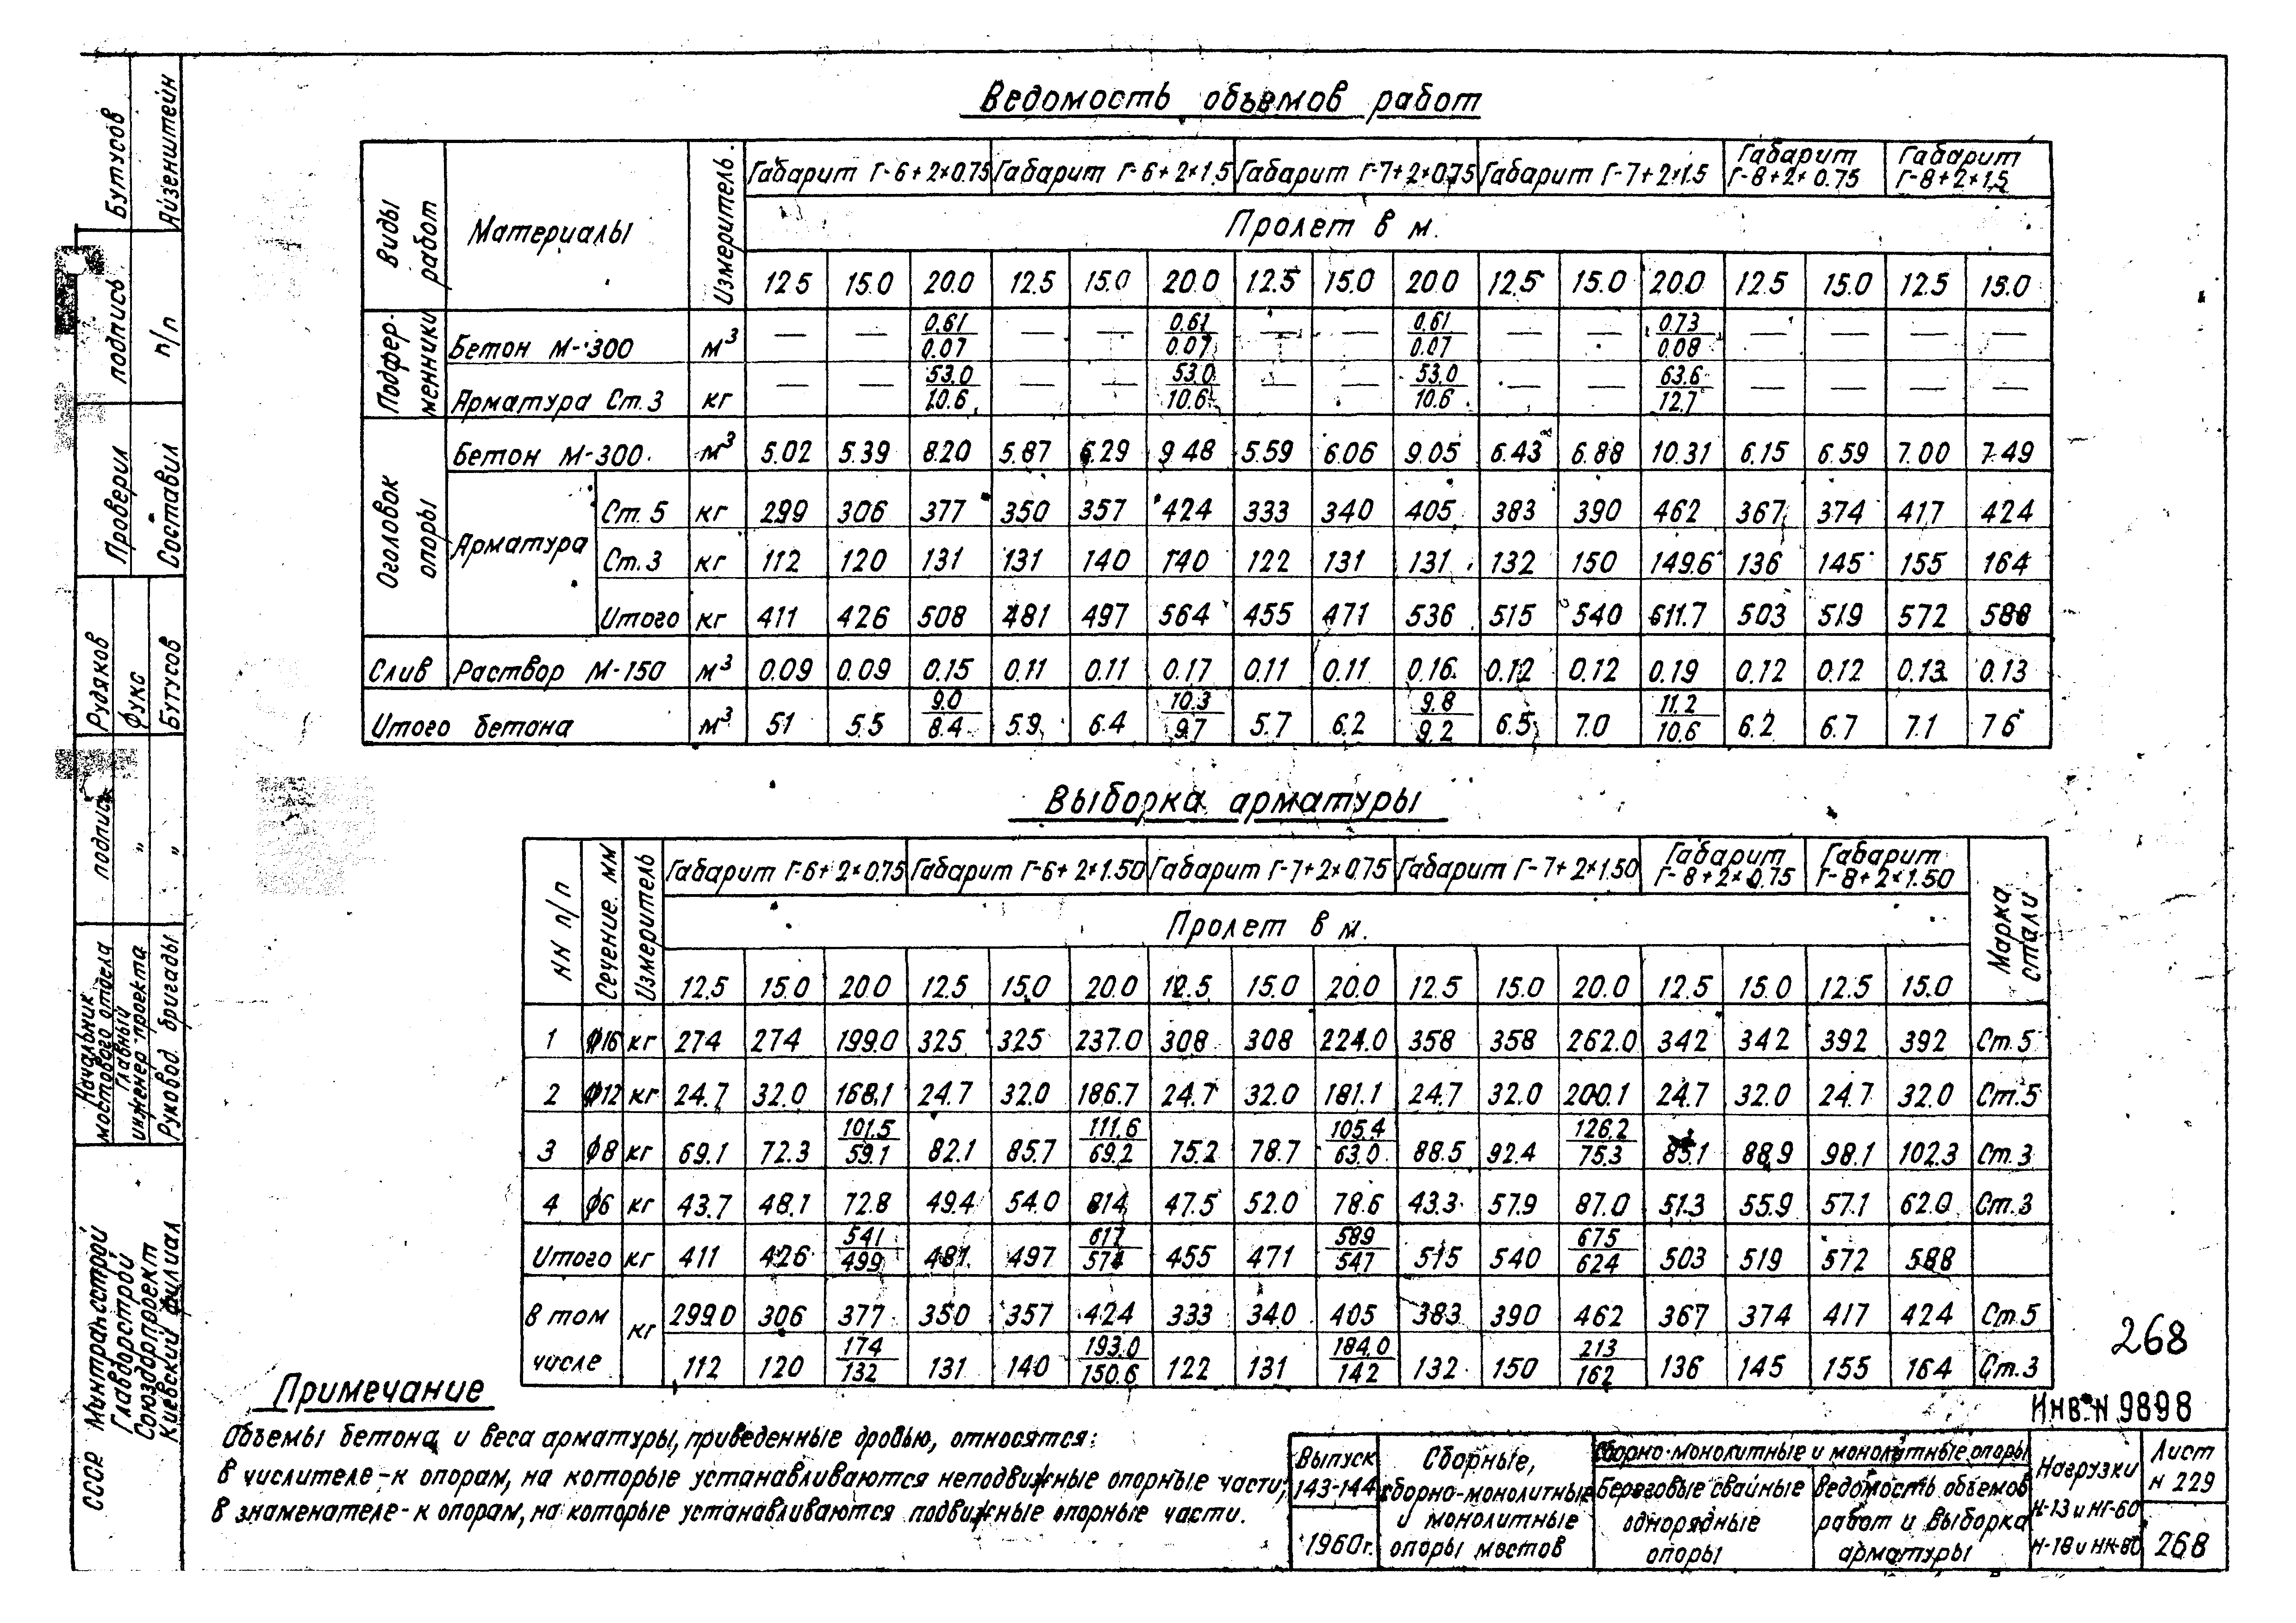 Ведомость объемов работ
Виды работ | Материалы | Измеритель. | Габарит Г-6+2×0.75 | Габарит Г-6+2×1,5 | Габарит Г-7+2×0.75 | Габарит Г-7+2×1.5 | Габарит Г-8+2×0.75 | Габарит Г-8+2×1,5
Пролет в м.
12.5 15.0 20.0 12.5 15.0 20.0 12.5 15.0 20.0 12.5 15.0 20.0 12.5 15.0 12.5 15.0
Подферменники
Бетон М-300 м³ — — 0.61/0.07 — — 0.61/0.07 — — 0.61/0.07 — — 0.73/0.08 — — — —
Арматура Ст.3 кг — — 53.0/10.6 — — 53.0/10.6 — — 53.0/10.6 — — 63.6/12.7 — — — —
Оголовок опоры
Бетон М-300 м³ 5.02 5.39 8.20 5.87 6.29 9.48 5.59 6.06 9.05 6.43 6.88 10.31 6.15 6.59 7.00 7.49
Арматура
Ст.5 кг 299 306 377 350 357 424 333 340 405 383 390 462 367 374 417 424
Ст.3 кг 112 120 131 131 140 140 122 131 131 132 150 149.6 136 145 155 164
Итого кг 411 426 508 481 497 564 455 471 536 515 540 611.7 503 519 572 588
Слив Раствор М-150 м³ 0.09 0.09 0.15 0.11 0.11 0.17 0.11 0.11 0.16 0.12 0.12 0.19 0.12 0.12 0.13 0.13
Итого бетона м³ 5.1 5.5 9.0/8.4 5.9 6.4 10.3/9.7 5.7 6.2 9.8/9.2 6.5 7.0 11.2/10.6 6.2 6.7 7.1 7.6
Выборка арматуры
NN п/п | Сечение мм | Измеритель | Габарит Г-6+2×0.75 | Габарит Г-6+2×1.50 | Габарит Г-7+2×0.75 | Габарит Г-7+2×1.50 | Габарит Г-8+2×0.75 | Габарит Г-8+2×1.50 | Марка стали
Пролет в м.
12.5 15.0 20.0 12.5 15.0 20.0 12.5 15.0 20.0 12.5 15.0 20.0 12.5 15.0 12.5 15.0
1 ф16 кг 274 274 199.0 325 325 237.0 308 308 224.0 358 358 262.0 342 342 392 392 Ст.5
2 ф12 кг 24.7 32.0 168.1 24.7 32.0 186.7 24.7 32.0 181.1 24.7 32.0 200.1 24.7 32.0 24.7 32.0 Ст.5
3 ф8 кг 69.1 72.3 101.5/59.1 82.1 85.7 111.6/69.2 75.2 78.7 105.4/63.0 88.5 92.4 126.2/75.3 85.1 88.9 98.1 102.3 Ст.3
4 ф6 кг 43.7 48.1 72.8 49.4 54.0 81.4 47.5 52.0 78.6 43.3 57.9 87.0 51.3 55.9 57.1 62.0 Ст.3
Итого кг 411 426 541/499 481 497 617/574 455 471 589/547 515 540 675/624 503 519 572 588
в том числе кг
299.0 306 377 350 357 424 333 340 405 383 390 462 367 374 417 424 Ст.5
112 120 174/132 131 140 193.0/150.6 122 131 184.0/142 132 150 213/162 136 145 155 164 Ст.3
Примечание
Объемы бетона и веса арматуры, приведенные дробью, относятся:
в числителе - к опорам, на которые устанавливаются неподвижные опорные части;
в знаменателе - к опорам, на которые устанавливаются подвижные опорные части.
268
Инв. N 9898
Выпуск 143-144
1960г.
Сборные,
сборно-монолитные
и монолитные
опоры мостов
Сборно-монолитные и монолитные опоры
Береговые свайные
однорядные
опоры
Ведомость объемов
работ и выборка
арматуры
Нагрузки
Н-13 и НГ-60
Н-18 и НК-80
Лист
н 229
268
Бутусов
Айзенштейн
подпись
п/п
Проверил
Составил
Рудяков
Фукс
Бутусов
подпись
"
"
Начальник
мостового отдела
Главный
инженер проекта
Руковод. бригады
СССР Минтрансстрой
Главдорстрой
Союздорпроект
Киевский филиал